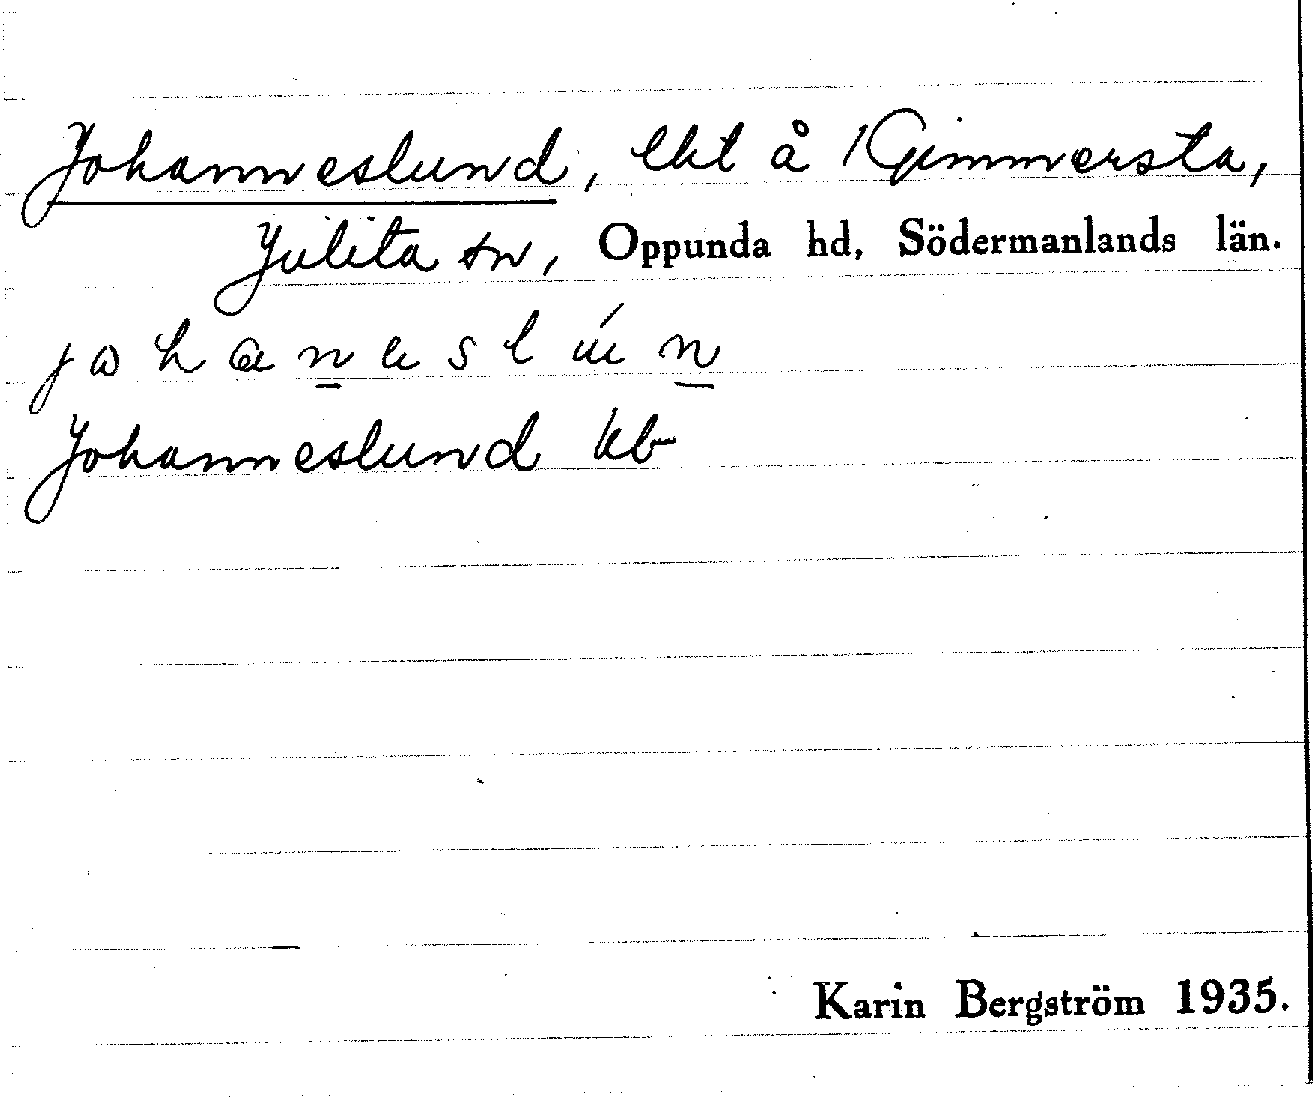 Johanneslund, lht å Gimmersta,
Julita sn, Oppunda hd, Södermanlands län.
johaneslún
Johanneslund kb
Karin Bergström 1935.